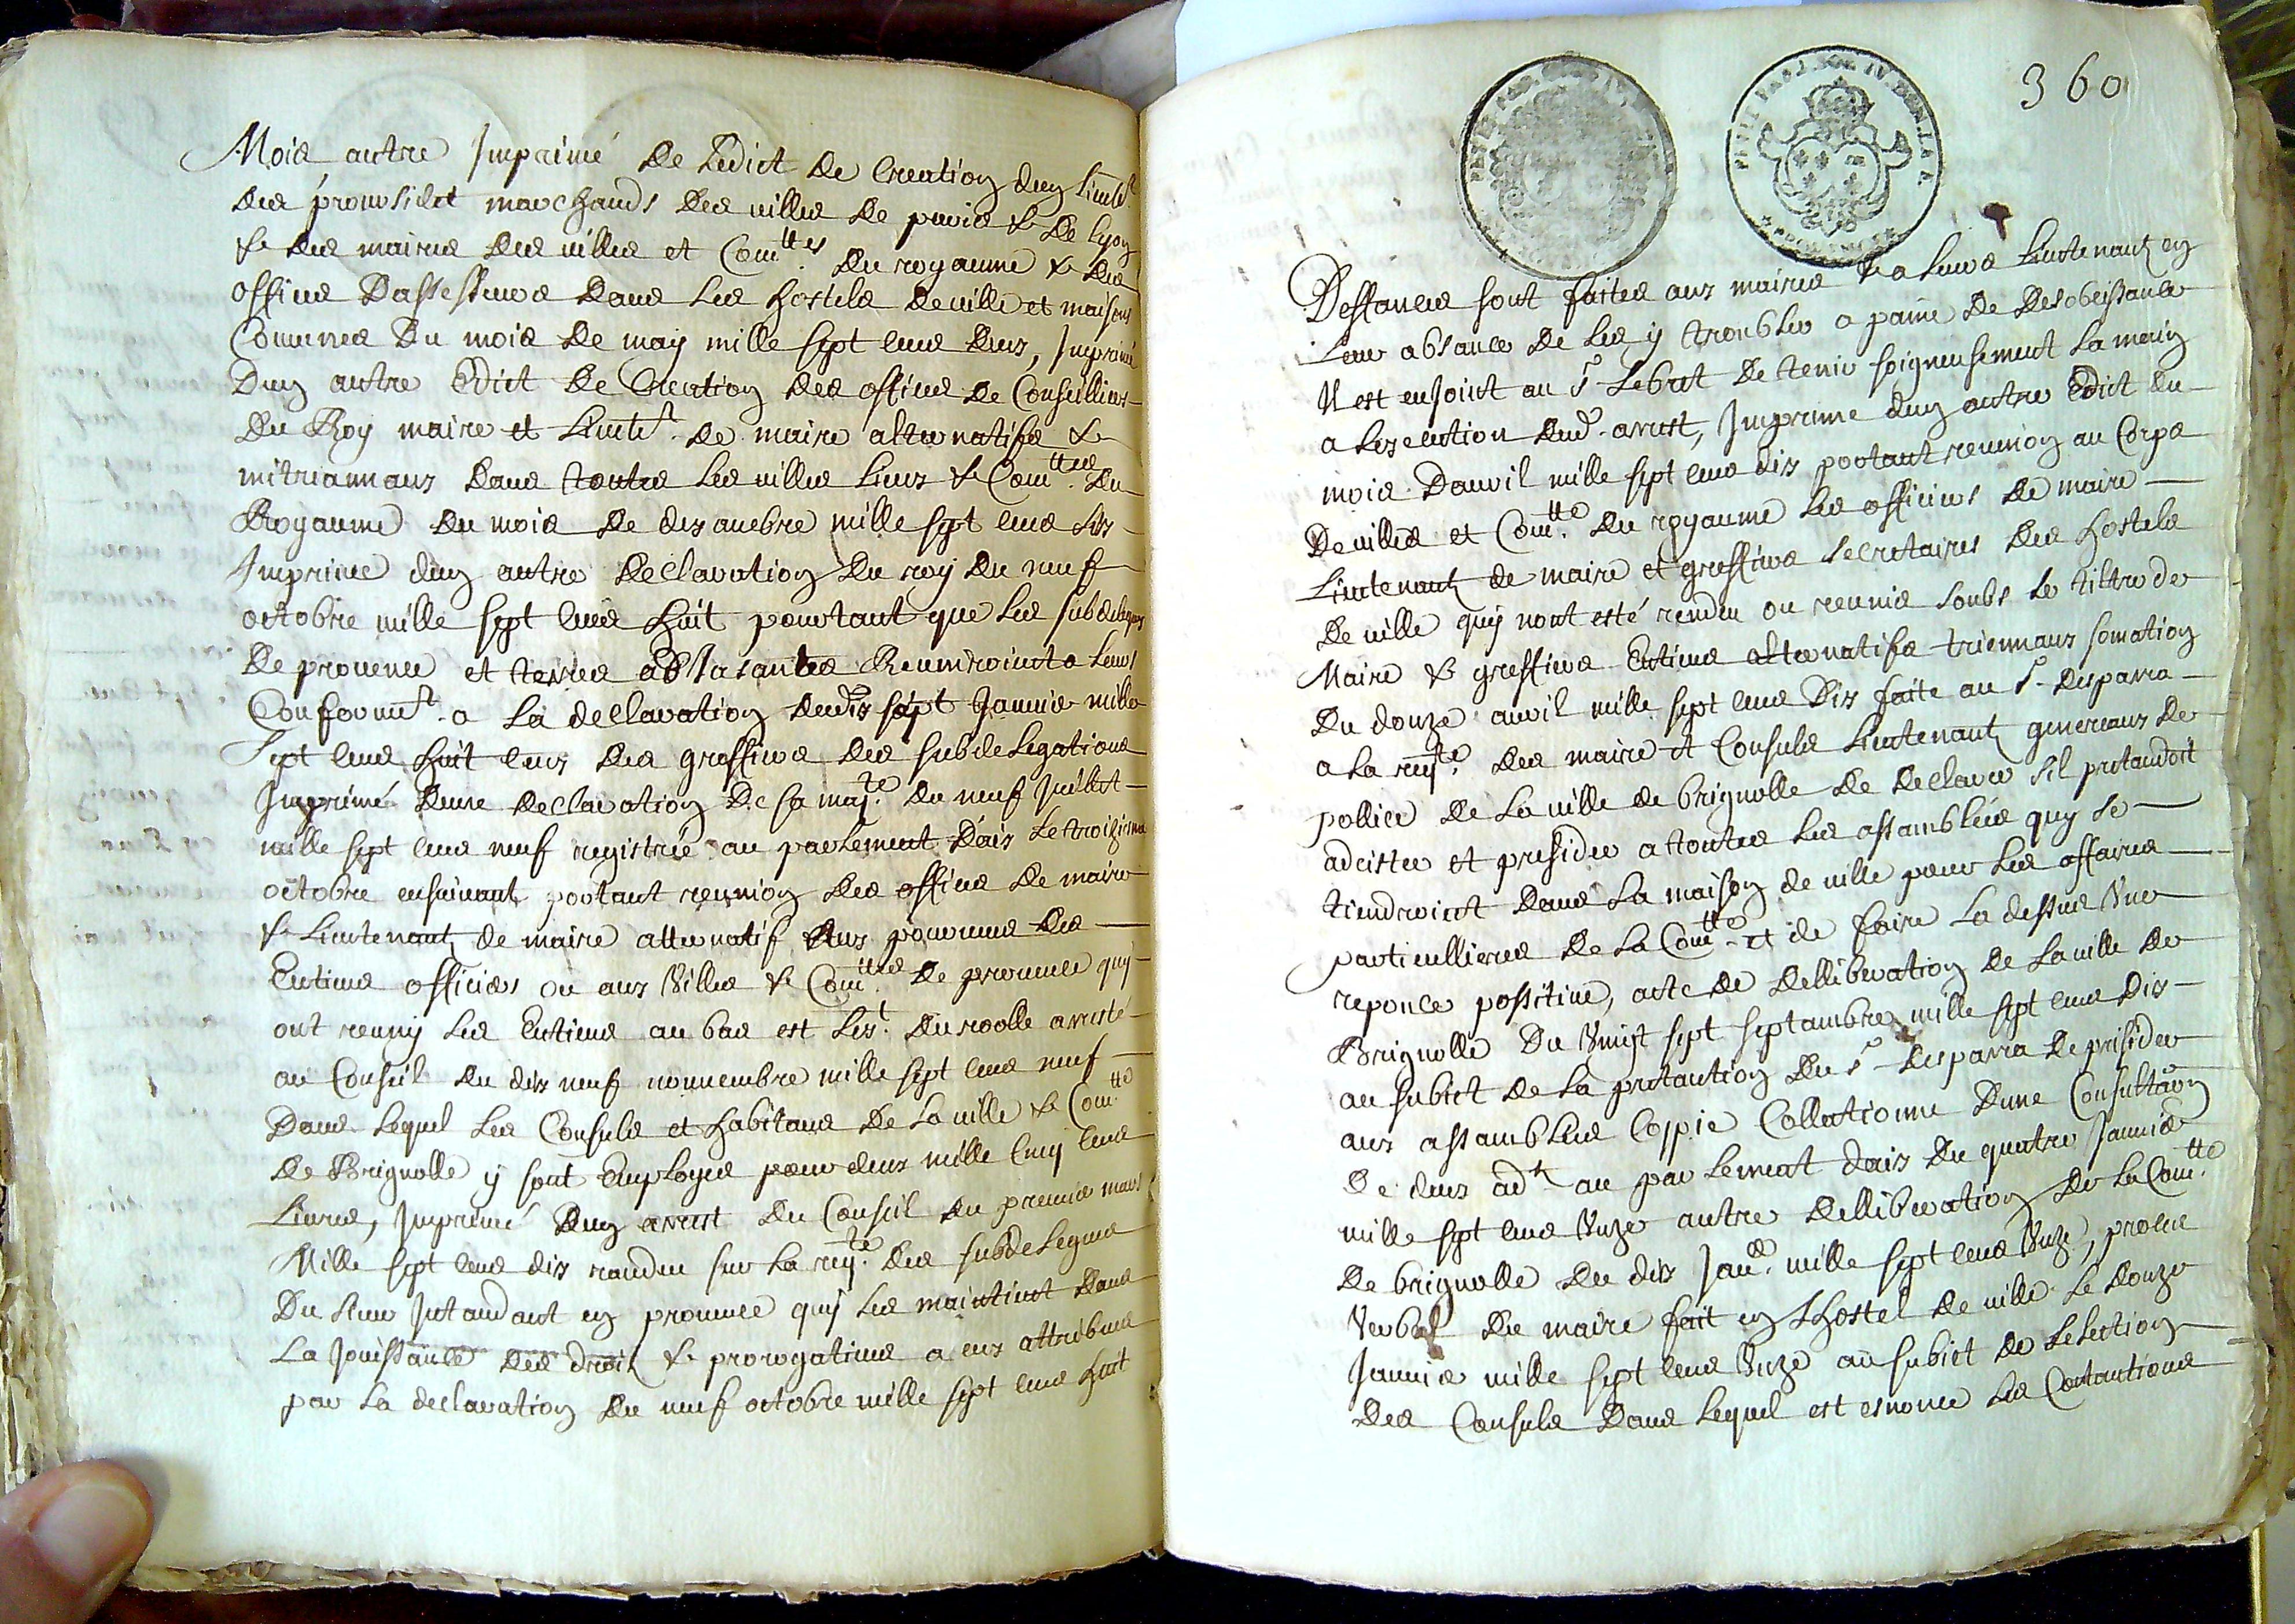 Mois autre Imprimé de Ledict de Creation dun Lieutt
des provosidet marchands des villes de paris & de Lyon
& des maires des villes et Comttes du royaume & des
offices Dassesseurs dans les hostels de ville et maisons
Comunes du mois de may mille sept cens deux, Imprimé
Dun autre Edict de Creation des offices de Conseilliers
du Roy maire et Lieutt de maire alternatifs &
mitriannaux dans toutes les villes lieux & Comttes du
Royaume du mois de desanebre mille sept cens six
Imprime dun autre declaration du roy du neuf
octobre mille sept cens huit pourtant que les subdelegues
de provence et terres adjasantes Reundroint a leurs
Conformt a la declaration du dix sept Janvier mille
Sept cens huit ceux des greffiers des subdelegations
Imprimé Dune declaration de sa majte du neuf Juillet
mille sept cens neuf registrée au parlement Daix le troizieme
octobre ensuivant portant reunion des offices de maire
& Lieutenant de maire alternatif aux pourveus des
Entiens offices ou aux Villes & Comttes de provence quy
ont reuny les Entiens au bas est Lext du roolle arresté
au Conseil du dix neuf nouvembre mille sept cens neuf
Dans lequel les Consuls et habitans de la ville & Comtte
de Brignolle y sont Employes pour deux mille Cinq cens
Livres, Imprimé Dun arrest du Conseil du premier mars
Mille sept cens dix randeu sur la reqte des subdelegues
Du sieur Intandant en provence quy les maintient dans
La Jouissance des droits & prorogatives a eux attribues
par la declaration du neuf octobre mille sept cens huit
360
Deffances sont faites aux maires & a leurs Lieutenants en
Leur absance de les y troubler a paine de desobeissance
Il est enjoint au sr Lebret de tenir soigneusement la main
a Lexecution dud. arrest, Imprime dun autre Edict du
mois Davril mille sept cens dix portant reunion au Corps
de villes et Comtte du royaume les officiers de maire
Lieutenants de maire et greffiers secretaires des hostels
de ville quy nont esté vendeu ou reunis soubs le tiltre de
Maire & greffiers Entiens alternatifs triennaux somation
du douze avril mille sept cens Dix faite au sr Desparra
a la reqte des maire et Consuls Lieutenants genereaux de
pollice de la ville de brignolle de declarer sil pretandoit
adcister et presider a toutes les assamblées quy se
tiendroint dans la maison de ville pour les affaires
particullieres de la Comtte et de faire la dessus Une
reponce possitive, acte de Delliberation de la ville de
Brignolle Du Vingt sept septambre mille sept cens Dix
au subiet de la pretantion du sr Desparra de presider
aux assamblées Coppie Collationne Dune Consultaon
de deux adts au parlement daix du quatre Janvier
mille sept cens Unze autre Delliberation de la Comtte
de brignolle du dix Janer mille sept cens Unze, proces
Verbal du maire fait en Lhostel de ville le douze
Janvier mille sept cens Unze au subiet de Lelection
des Consuls dans lequel est esnonce les Contantions